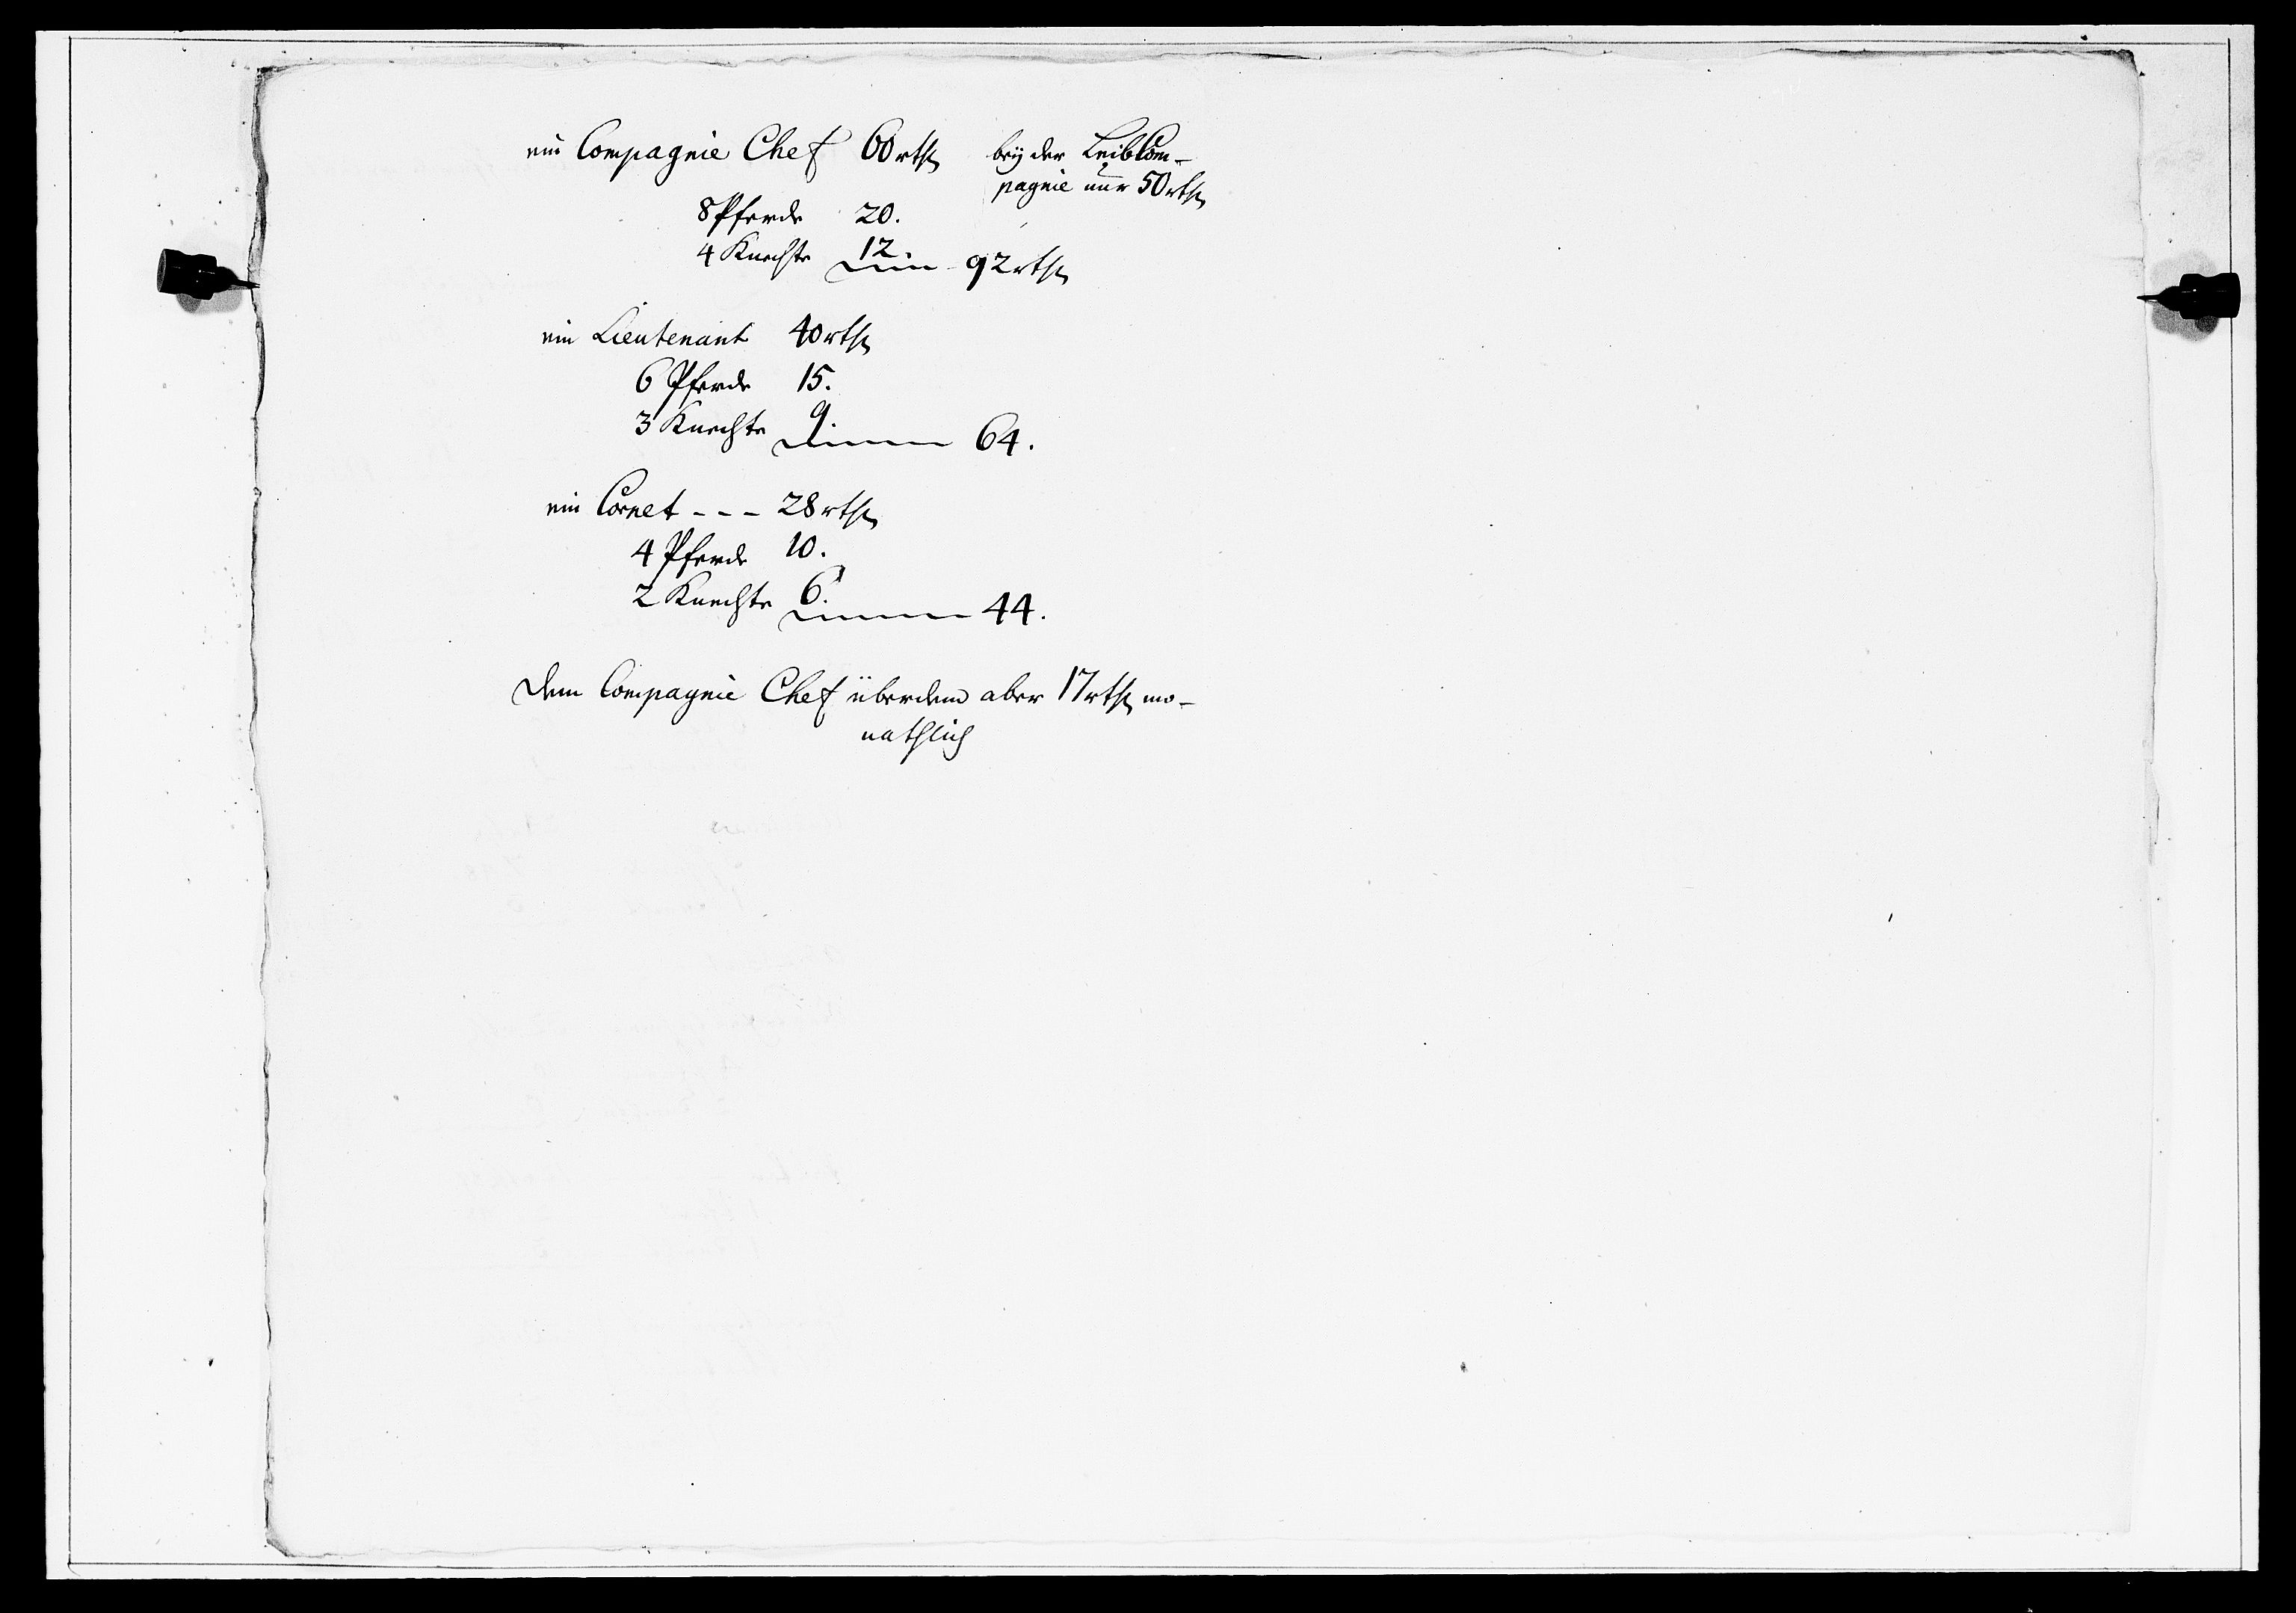 ein Compagnie Chef 60 rthl bey der LeibCom-
pagnie nur 50 rthl
8 Pferde 20.
4 Knechte 12 92 rthl
ein Lieutenant 40 rthl
6 Pferde 15.
3 Knechte 9 64.
ein Cornet - - - 28 rthl
4 Pferde 10.
2 Knechte 6. 44.
dem Compagnie Chef überdem aber 17 rthl mo-
nathlich